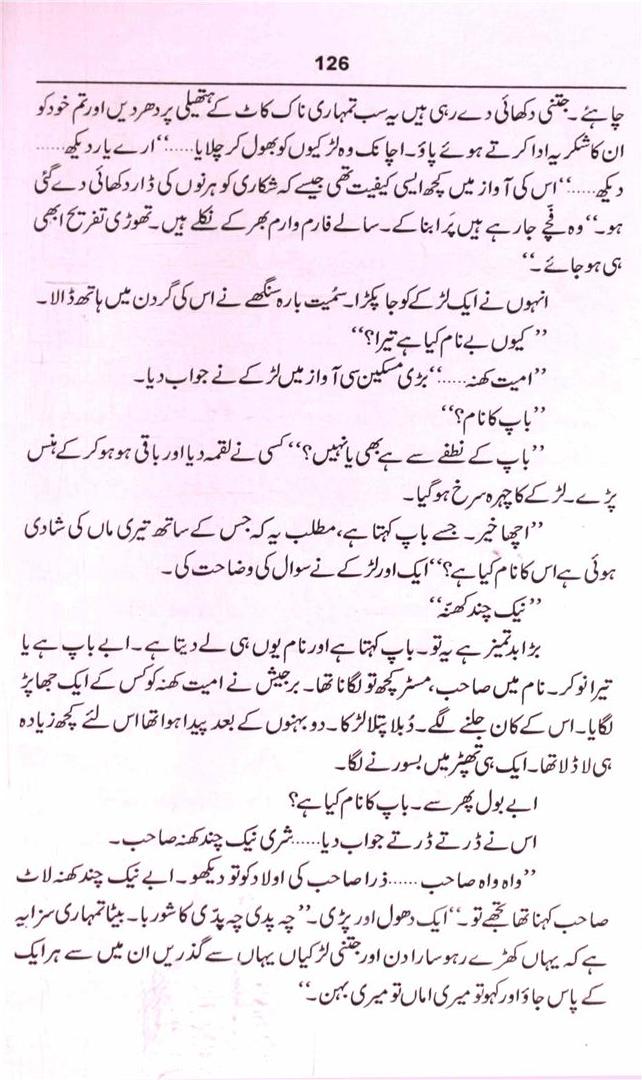 126
چاہئے۔ جتنی دکھائی دے رہی ہیں یہ سب تمہاری ناک کاٹ کے ہتھیلی پر دھر دیں اور تم خود کو
ان کا شکریہ ادا کرتے ہوئے پاؤ۔ اچانک وہ لڑکیوں کو بھول کر چلایا......‘‘ارے یار دیکھ......
دیکھ......‘‘اس کی آواز میں کچھ ایسی کیفیت تھی جیسے کہ شکاری کو ہرنوں کی ڈار دکھائی دے گئی
ہو۔‘‘وہ فَچّے جا رہے ہیں پَرا بنا کے۔ سالے فارم وارم بھر کے نکلے ہیں۔ تھوڑی تفریح ابھی
ہی ہو جائے۔‘‘
انہوں نے ایک لڑکے کو جا پکڑا۔ سُمیت بارہ سنگھے نے اس کی گردن میں ہاتھ ڈالا۔
’’کیوں بے نام کیا ہے تیرا؟‘‘
’’امیت کھنہ......‘‘بڑی مسکین سی آواز میں لڑکے نے جواب دیا۔
’’باپ کا نام؟‘‘
’’باپ کے نطفے سے ہے بھی یا نہیں؟‘‘کسی نے لقمہ دیا اور باقی ہو ہو کر کے ہنس
پڑے۔ لڑکے کا چہرہ سرخ ہو گیا۔
’’اچھا خیر۔ جسے باپ کہتا ہے، مطلب یہ کہ جس کے ساتھ تیری ماں کی شادی
ہوئی ہے اس کا نام کیا ہے؟‘‘ایک اور لڑکے نے سوال کی وضاحت کی۔
’’نیک چند کھنّہ‘‘
بڑا بدتمیز ہے یہ تو۔ باپ کہتا ہے اور نام یوں ہی لے دیتا ہے۔ ابے باپ ہے یا
تیرا نوکر۔ نام میں صاحب، مسٹر کچھ تو لگانا تھا۔ برجیش نے امیت کھنہ کو کس کے ایک جھاپڑ
لگایا۔ اس کے کان جلنے لگے۔ دُبلا پتلا لڑکا۔ دو بہنوں کے بعد پیدا ہوا تھا اس لئے کچھ زیادہ
ہی لاڈلا تھا۔ ایک ہی تھپڑ میں بسورنے لگا۔
ابے بول پھر سے۔ باپ کا نام کیا ہے؟
اس نے ڈرتے ڈرتے جواب دیا......شری نیک چند کھنہ صاحب۔
’’واہ واہ صاحب......ذرا صاحب کی اولاد کو تو دیکھو۔ ابے نیک چند کھنہ لاٹ
صاحب کہنا تھا تجھے تو۔‘‘ایک دھول اور پڑی۔’’چہ پدی چہ پدّی کا شوربا۔ بیٹا تمہاری سزا یہ
ہے کہ یہاں کھڑے رہو سارا دن اور جتنی لڑکیاں یہاں سے گذریں ان میں سے ہر ایک
کے پاس جاؤ اور کہو تو میری اماں تو میری بہن۔‘‘